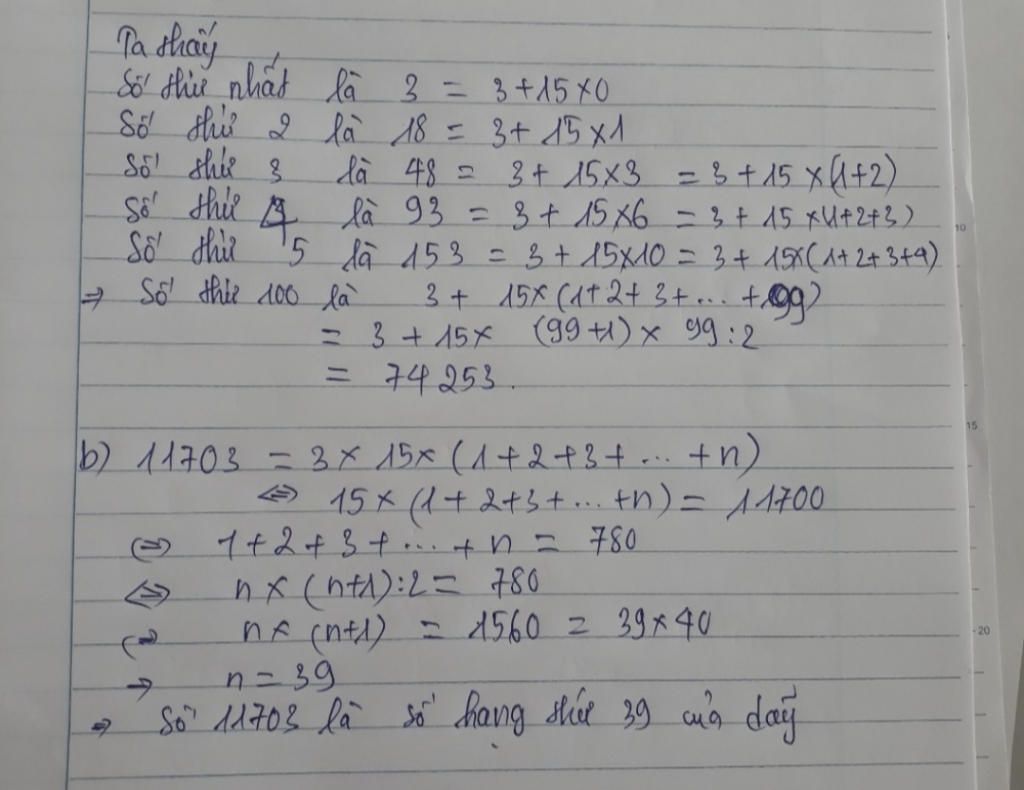 Ta thấy
Số thứ nhất là 3 = 3+15×0
Số thứ 2 là 18 = 3+ 15×1
Số thứ 3 là 48 = 3+ 15×3 = 3+15 ×(1+2)
Số thứ 4 là 93 = 3+ 15×6 = 3+ 15 ×(1+2+3)
Số thứ 5 là 153 = 3+15×10 = 3+ 15×(1+2+3+4)
⇒ Số thứ 100 là 3+ 15×(1+2+3+...+99)
= 3+15× (99+1)× 99:2
= 74253.
b) 11703 = 3×15×(1+2+3+...+n)
⇔ 15×(1+2+3+...+n) = 11700
⇔ 1+2+3+...+n = 780
⇔ n×(n+1):2 = 780
⇔ n×(n+1) = 1560 = 39×40
⇒ n=39
⇒ Số 11703 là số hạng thứ 39 của dãy
10
15
20